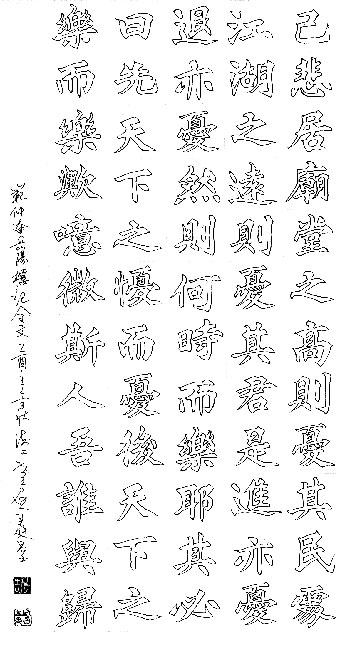 己悲居廟堂之高則憂其民處
江湖之遠則憂其君是進亦憂
退亦憂然則何時而樂耶其必
曰先天下之懮而憂後天下之
樂而樂歟噫微斯人吾誰與歸
范仲淹岳陽樓記全文乙酉